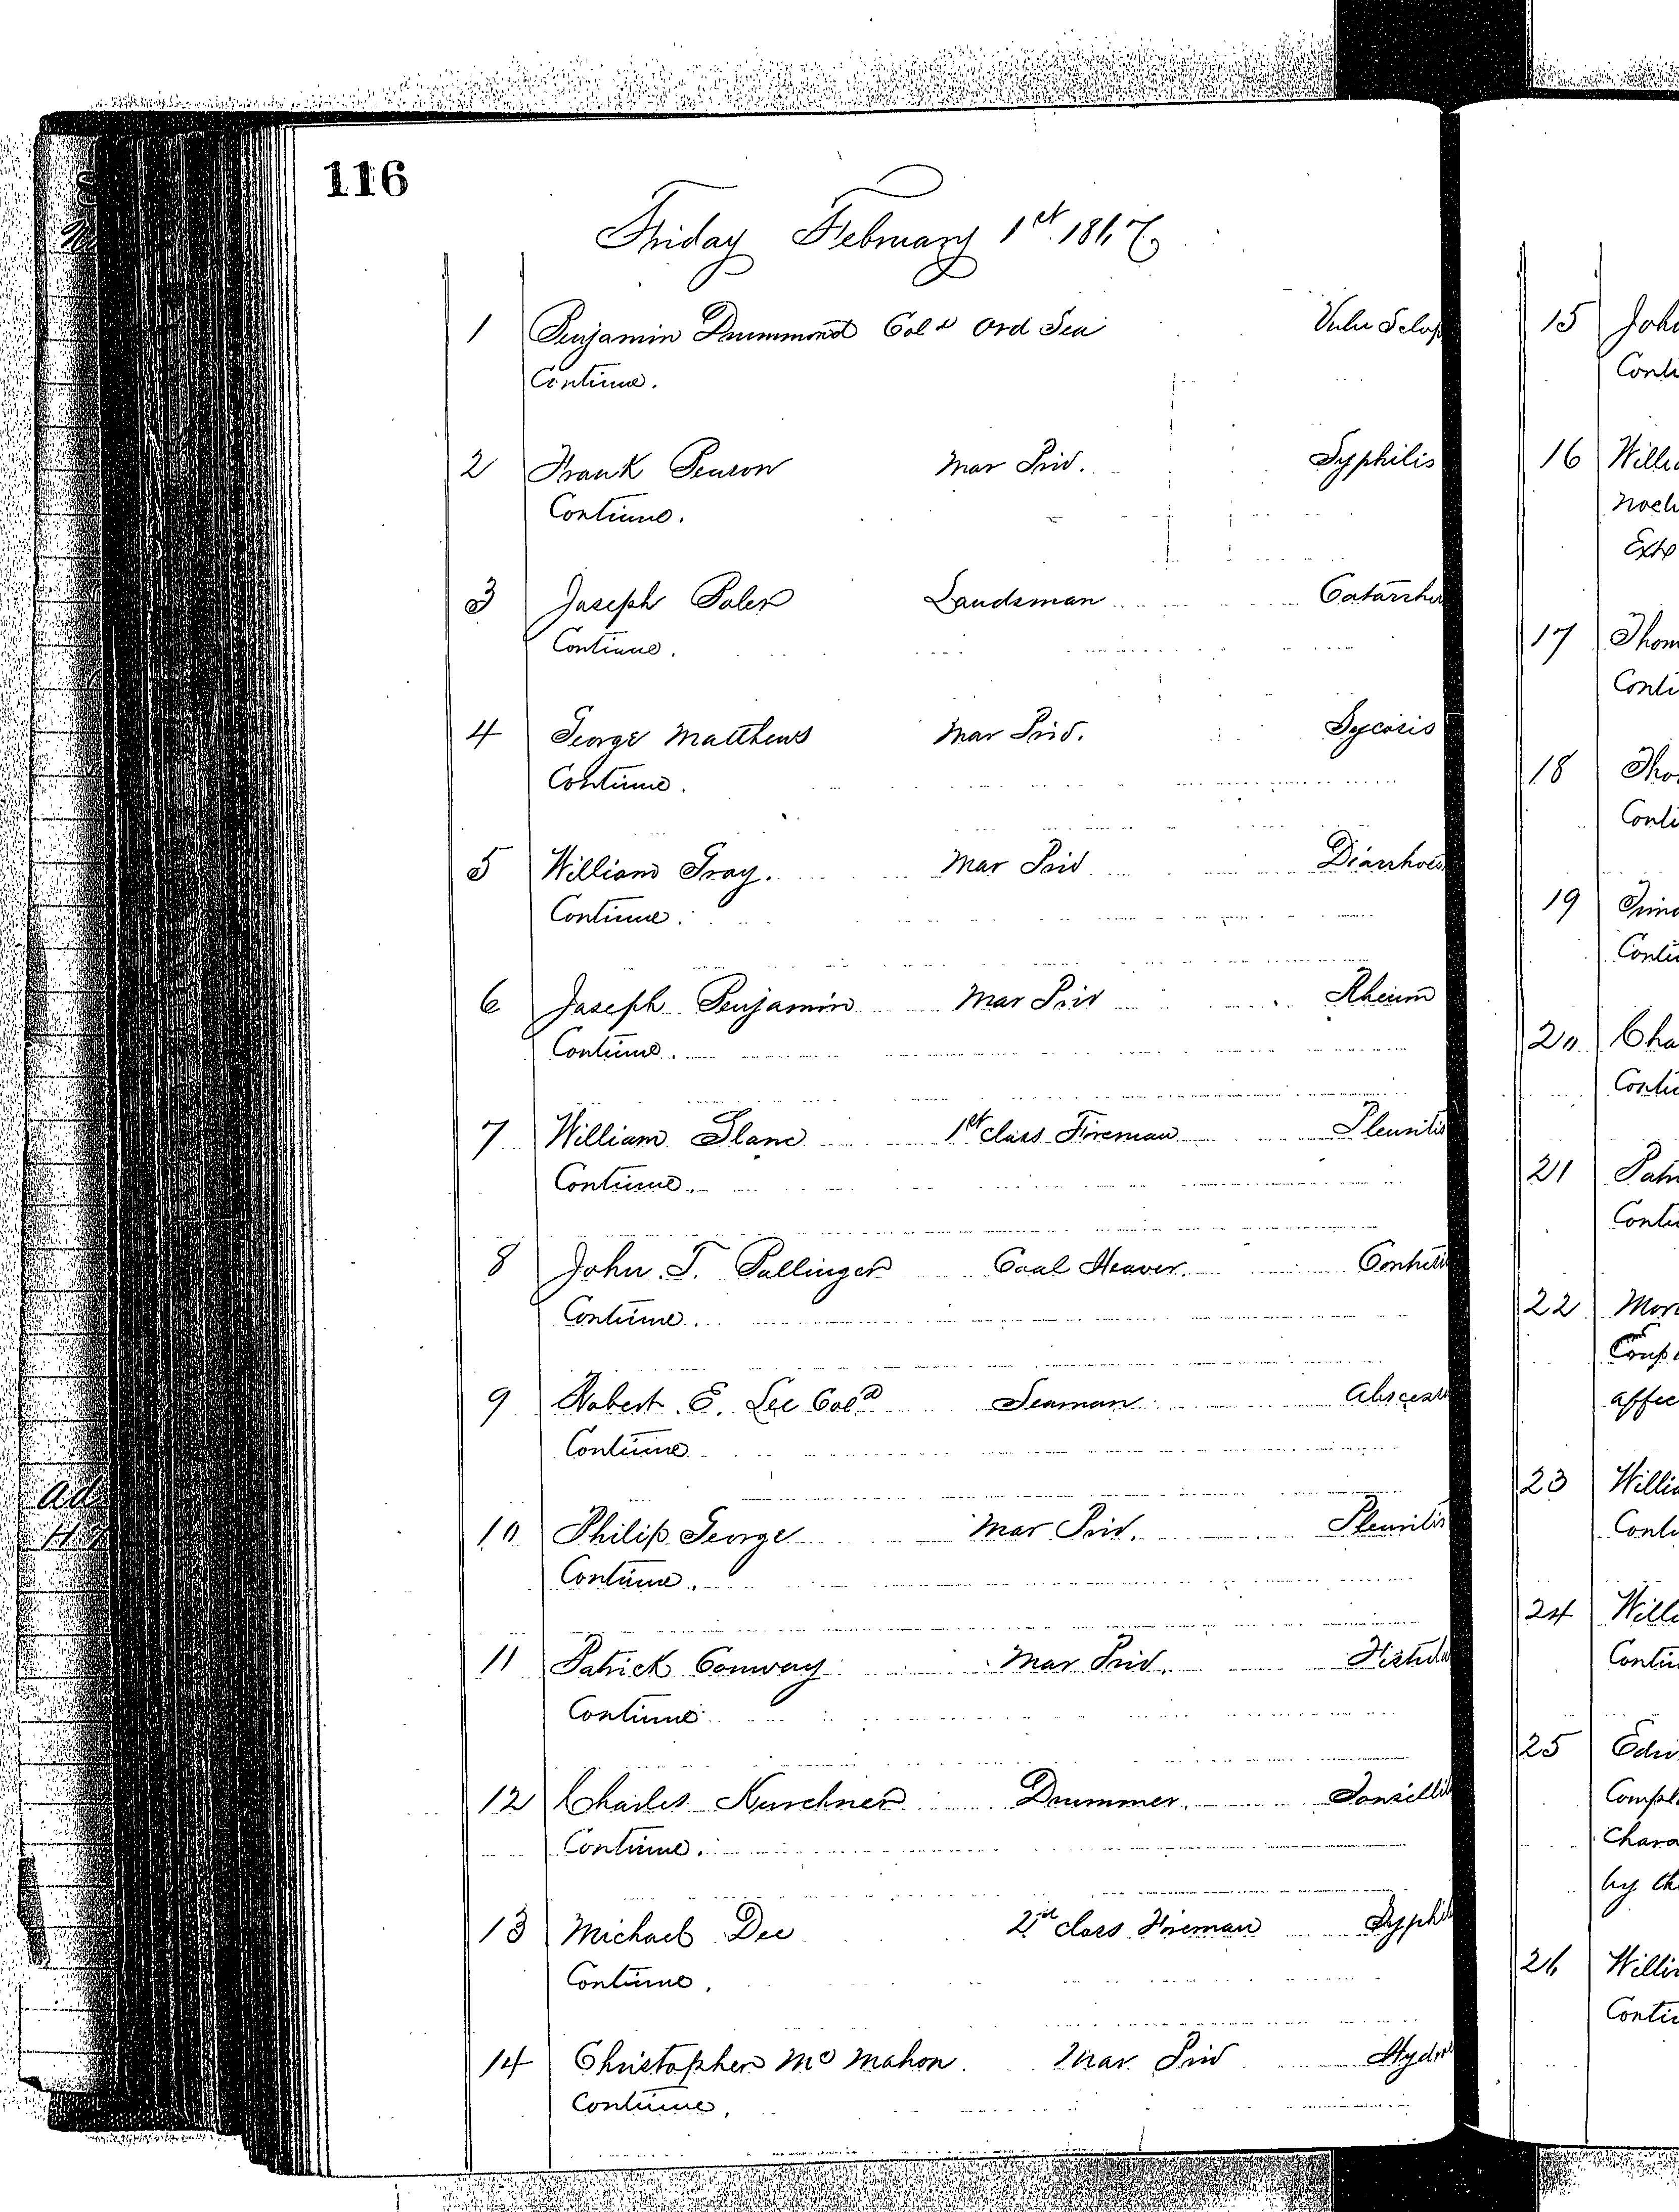 116
Friday February 1st 1867
1 Benjamin Drummond Cold Ord Sea Vuln Sclop
Continue.
2 Frank Pearson Mar Priv. Syphilis
Continue.
3 Joseph Baler Landsman Catarrhu
Continue.
4 George Matthews Mar Priv. Sycosis
Continue.
5 William Gray. Mar Priv Diarrhoea
Continue.
6 Joseph Benjamin Mar Priv Rheum
Continue.
7 William Slane 1st class Fireman Pleuritis
Continue.
8 John T. Ballinger Coal Heaver. Contusi
Continue.
9 Robert E. Lee Cold Seaman Abscess
Continue
10 Philip George Mar Priv. Pleuritis
Continue.
11 Patrick Conway Mar Priv. Fistula
Continue
12 Charles Kurchner Drummer. Tonsillit
Continue.
13 Michael Dee 2d class Fireman Syphil
Continue.
14 Christopher McMahon. Mar Priv Hydro
Continue.
15 John
Conti
16 Willia
Noch
Exte
17 Thom
Conti
18 Tho
Conti
19 Timo
Conti
20 Cha
Conti
21 Patr
Conti
22 Mor
Comp
affec
23 Willia
Conti
24 Willi
Contin
25 Edw
Compl
Chara
by th
26 Willi
Contin
Ad